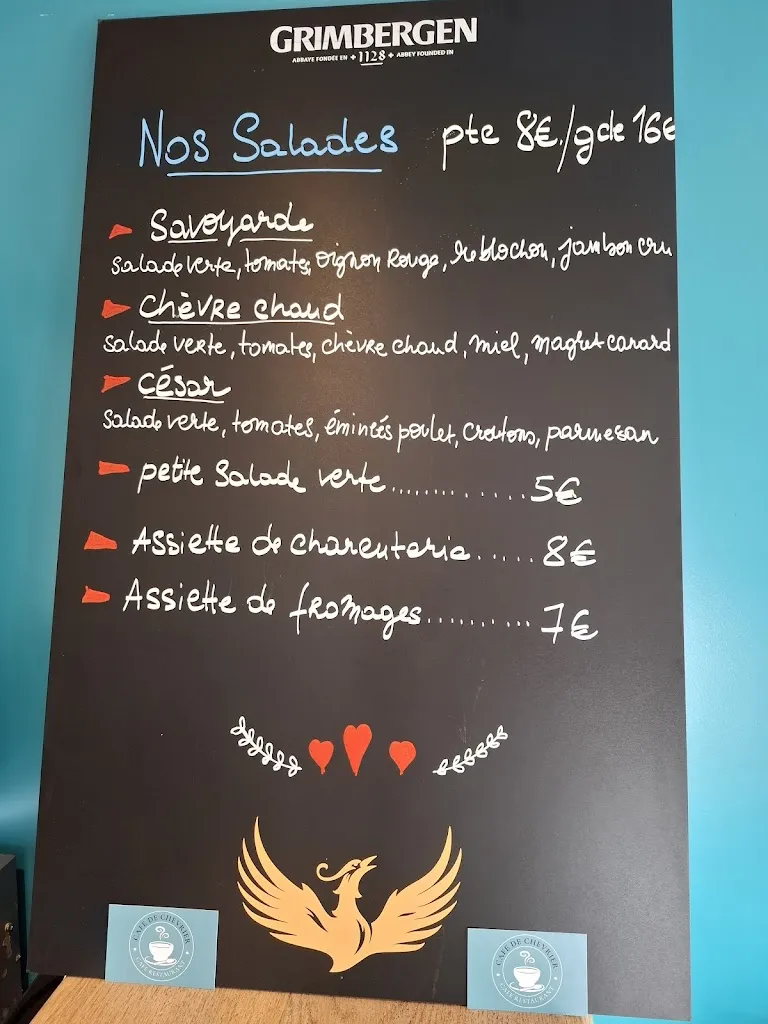 GRIMBERGEN
ABBAYE FONDÉE EN + 1128 + ABBEY FOUNDED IN
Nos Salades pte 8€/gde 16€
Savoyarde
Salade verte, tomates, oignon Rouge, reblochon, jambon cru
Chèvre chaud
Salade verte, tomates, chèvre chaud, miel, magret canard
César
Salade verte, tomates, émincés poulet, croutons, parmesan
petite Salade verte.................5€
Assiette de charcuterie......8€
Assiette de fromages..........7€
CAFE DE CHEVRIER
CAFE RESTAURANT
CAFE DE CHEVRIER
CAFE RESTAURANT